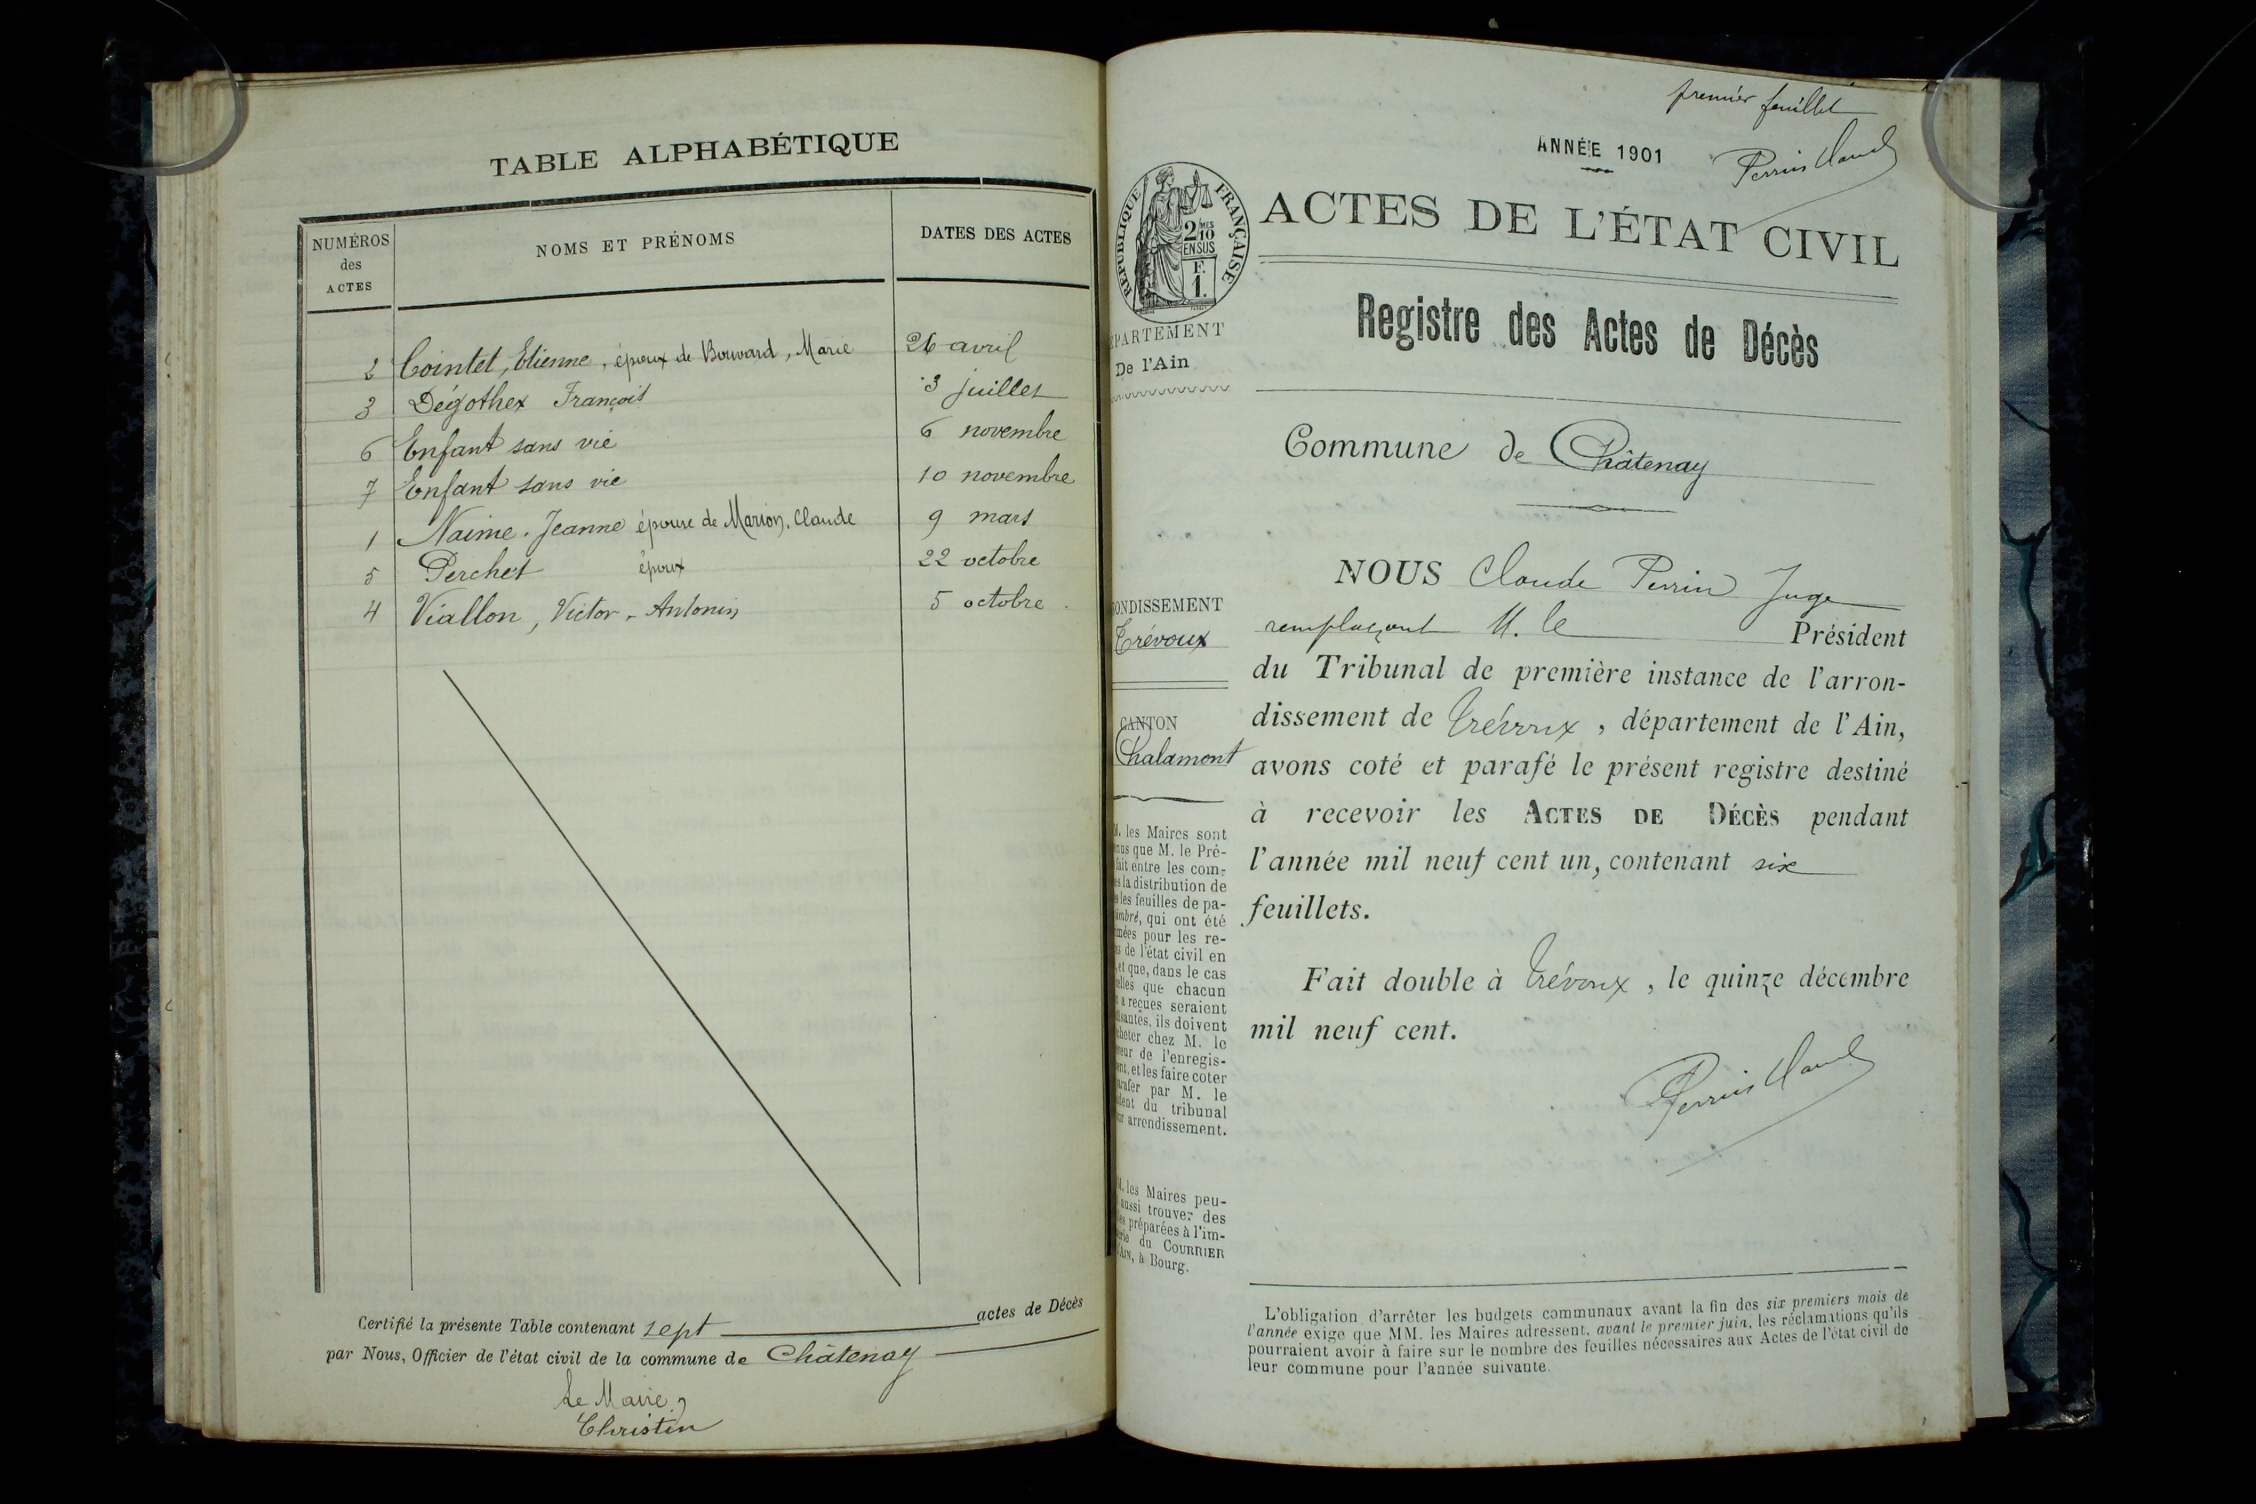 TABLE ALPHABÉTIQUE
NUMÉROS
des
ACTES
NOMS ET PRÉNOMS
DATES DES ACTES
2 Cointet, Etienne, époux de Bouvard, Marie 26 avril
3 Dégothex François 3 juillet
6 Enfant sans vie 6 novembre
7 Enfant sans vie 10 novembre
1 Naime. Jeanne épouse de Marion, Claude 9 mars
5 Perchet époux 22 octobre
4 Viallon, Victor - Antonin 5 octobre
Certifié la présente Table contenant sept actes de Décès
par Nous, Officier de l'état civil de la commune de Châtenay
Le Maire,
Christin
premier feuillet
ANNÉE 1901
Perrin Claude
RÉPUBLIQUE FRANÇAISE
2/10 MES
EN SUS
F.
1.
ACTES DE L'ÉTAT CIVIL
Registre des Actes de Décès
PARTEMENT
De l'Ain
Commune de Châtenay
ONDISSEMENT
Trévoux
CANTON
Chalamont
NOUS Claude Perrin Juge
remplaçant M. le Président
du Tribunal de première instance de l'arron-
dissement de Trévoux, département de l'Ain,
avons coté et parafé le présent registre destiné
à recevoir les ACTES DE DÉCÈS pendant
l'année mil neuf cent un, contenant six
feuillets.
Fait double à Trévoux, le quinze décembre
mil neuf cent.
Perrin Claude
M. les Maires sont
que M. le Pré-
fait entre les com-
la distribution de
les feuilles de pa-
timbré, qui ont été
pour les re-
de l'état civil en
et que, dans le cas
que chacun
a reçues seraient
ils doivent
chez M. le
de l'enregis-
et les faire coter
par M. le
du tribunal
arrondissement.
M. les Maires peu-
aussi trouver des
préparées à l'im-
du COURRIER
AIN, à Bourg.
L'obligation d'arrêter les budgets communaux avant la fin des six premiers mois de
l'année exige que MM. les Maires adressent, avant le premier juin, les réclamations qu'ils
pourraient avoir à faire sur le nombre des feuilles nécessaires aux Actes de l'état civil de
leur commune pour l'année suivante.